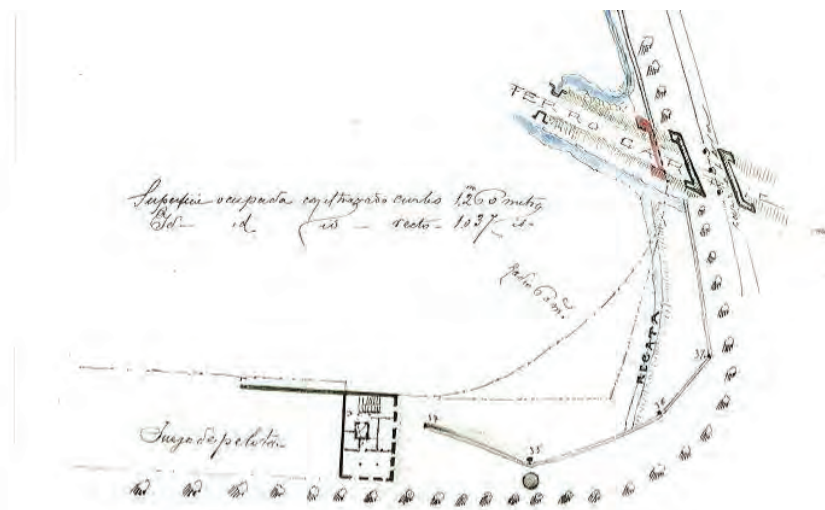 FERRO-CAR
Superficie ocupada con trazado curbo 1260 metros
Id— id id — recto — 1037 id—
Radio 60 m.
REGATA
37
36
35
Juego de pelota